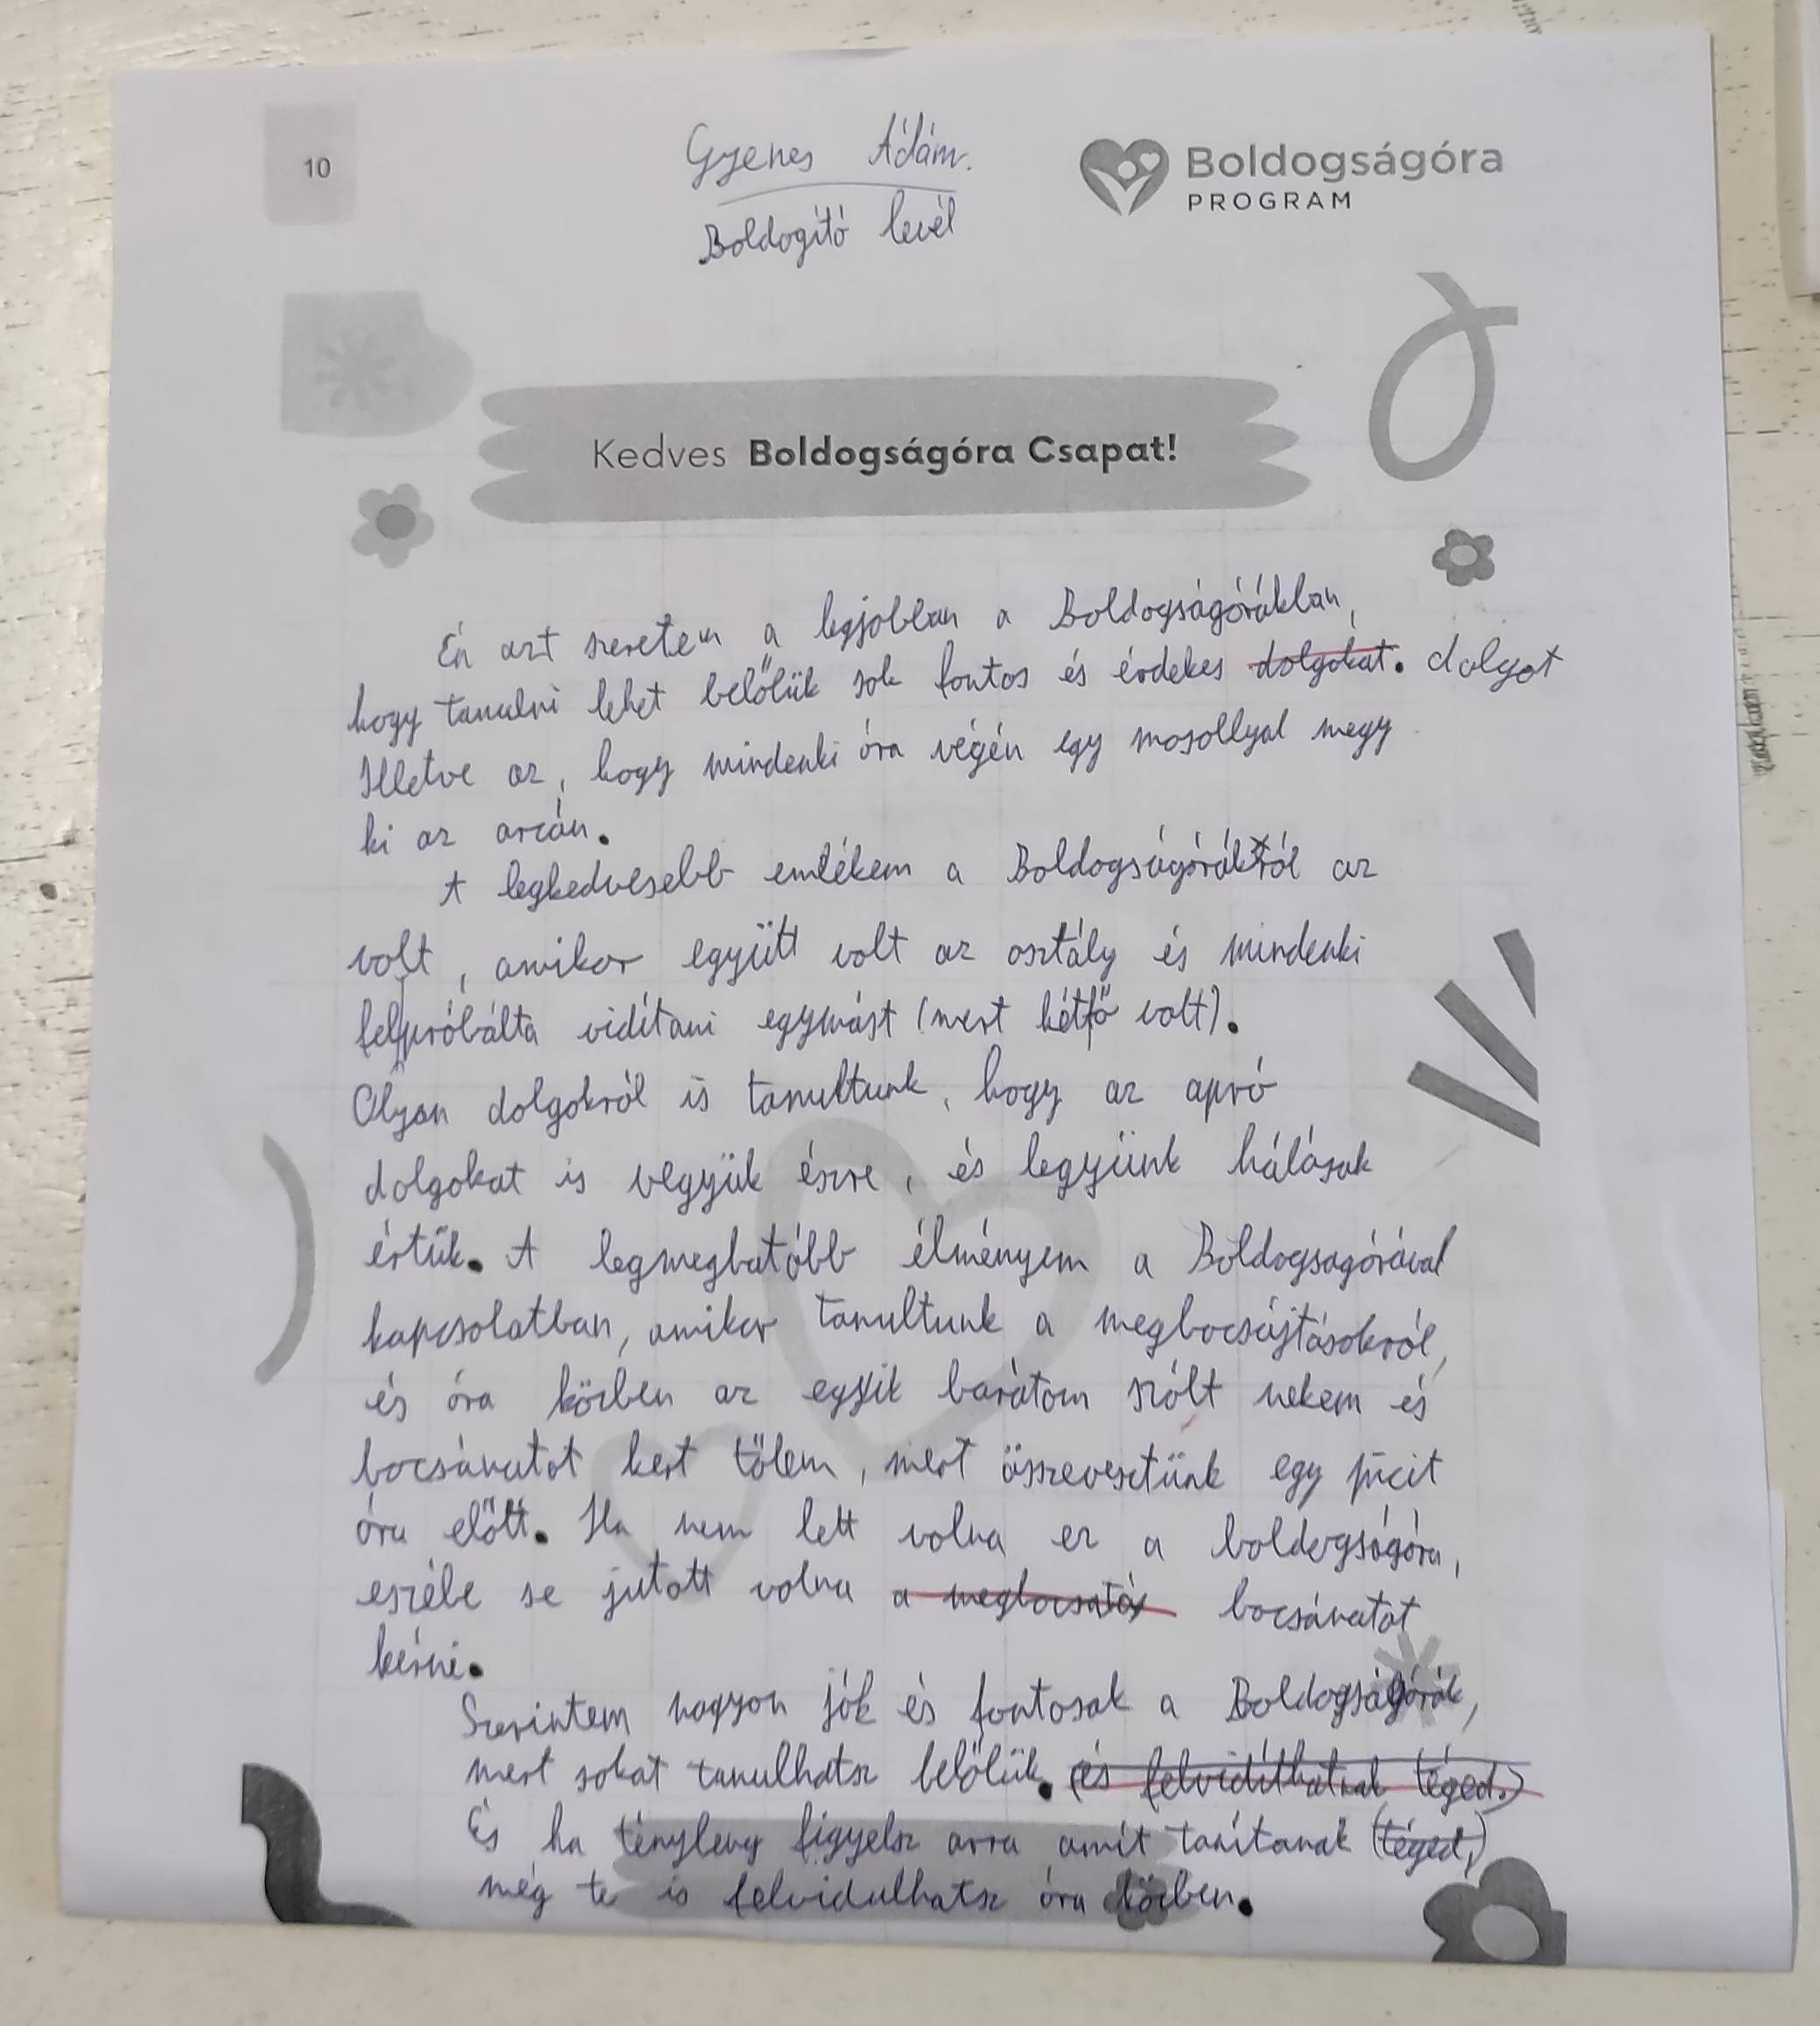 10
Gyenes Ádám.
Boldogító levél
Boldogságóra
PROGRAM
Kedves Boldogságóra Csapat!
Én azt szeretem a legjobban a Boldogságórákban,
hogy tanulni lehet belőlük sok fontos és érdekes dolgokat. dolgot
Illetve az, hogy mindenki óra végén egy mosollyal megy
ki az arcán.
A legkedvesebb emlékem a Boldogságórákról az
volt, amikor együtt volt az osztály és mindenki
felpróbálta vidítani egymást (mert hétfő volt).
Olyan dolgokról is tanultunk, hogy az apró
dolgokat is vegyük észre, és legyünk hálásak
értük. A legmeghatóbb élményem a Boldogságórával
kapcsolatban, amikor tanultunk a megbocsájtásokról,
és óra közben az egyik barátom szólt nekem és
bocsánatot kert tőlem, mert összevesztünk egy picit
óra előtt. Ha nem lett volna ez a boldogságóra,
eszébe se jutott volna a megbocsatás bocsánatot
kérni.
Szerintem nagyon jók és fontosak a Boldogságórák,
mert sokat tanulhatsz belőlük. (és felvidíthatnak téged.)
És ha tényleng figyelsz arra amit tanítanak (téged,)
még te is felvidulhatsz óra közben.